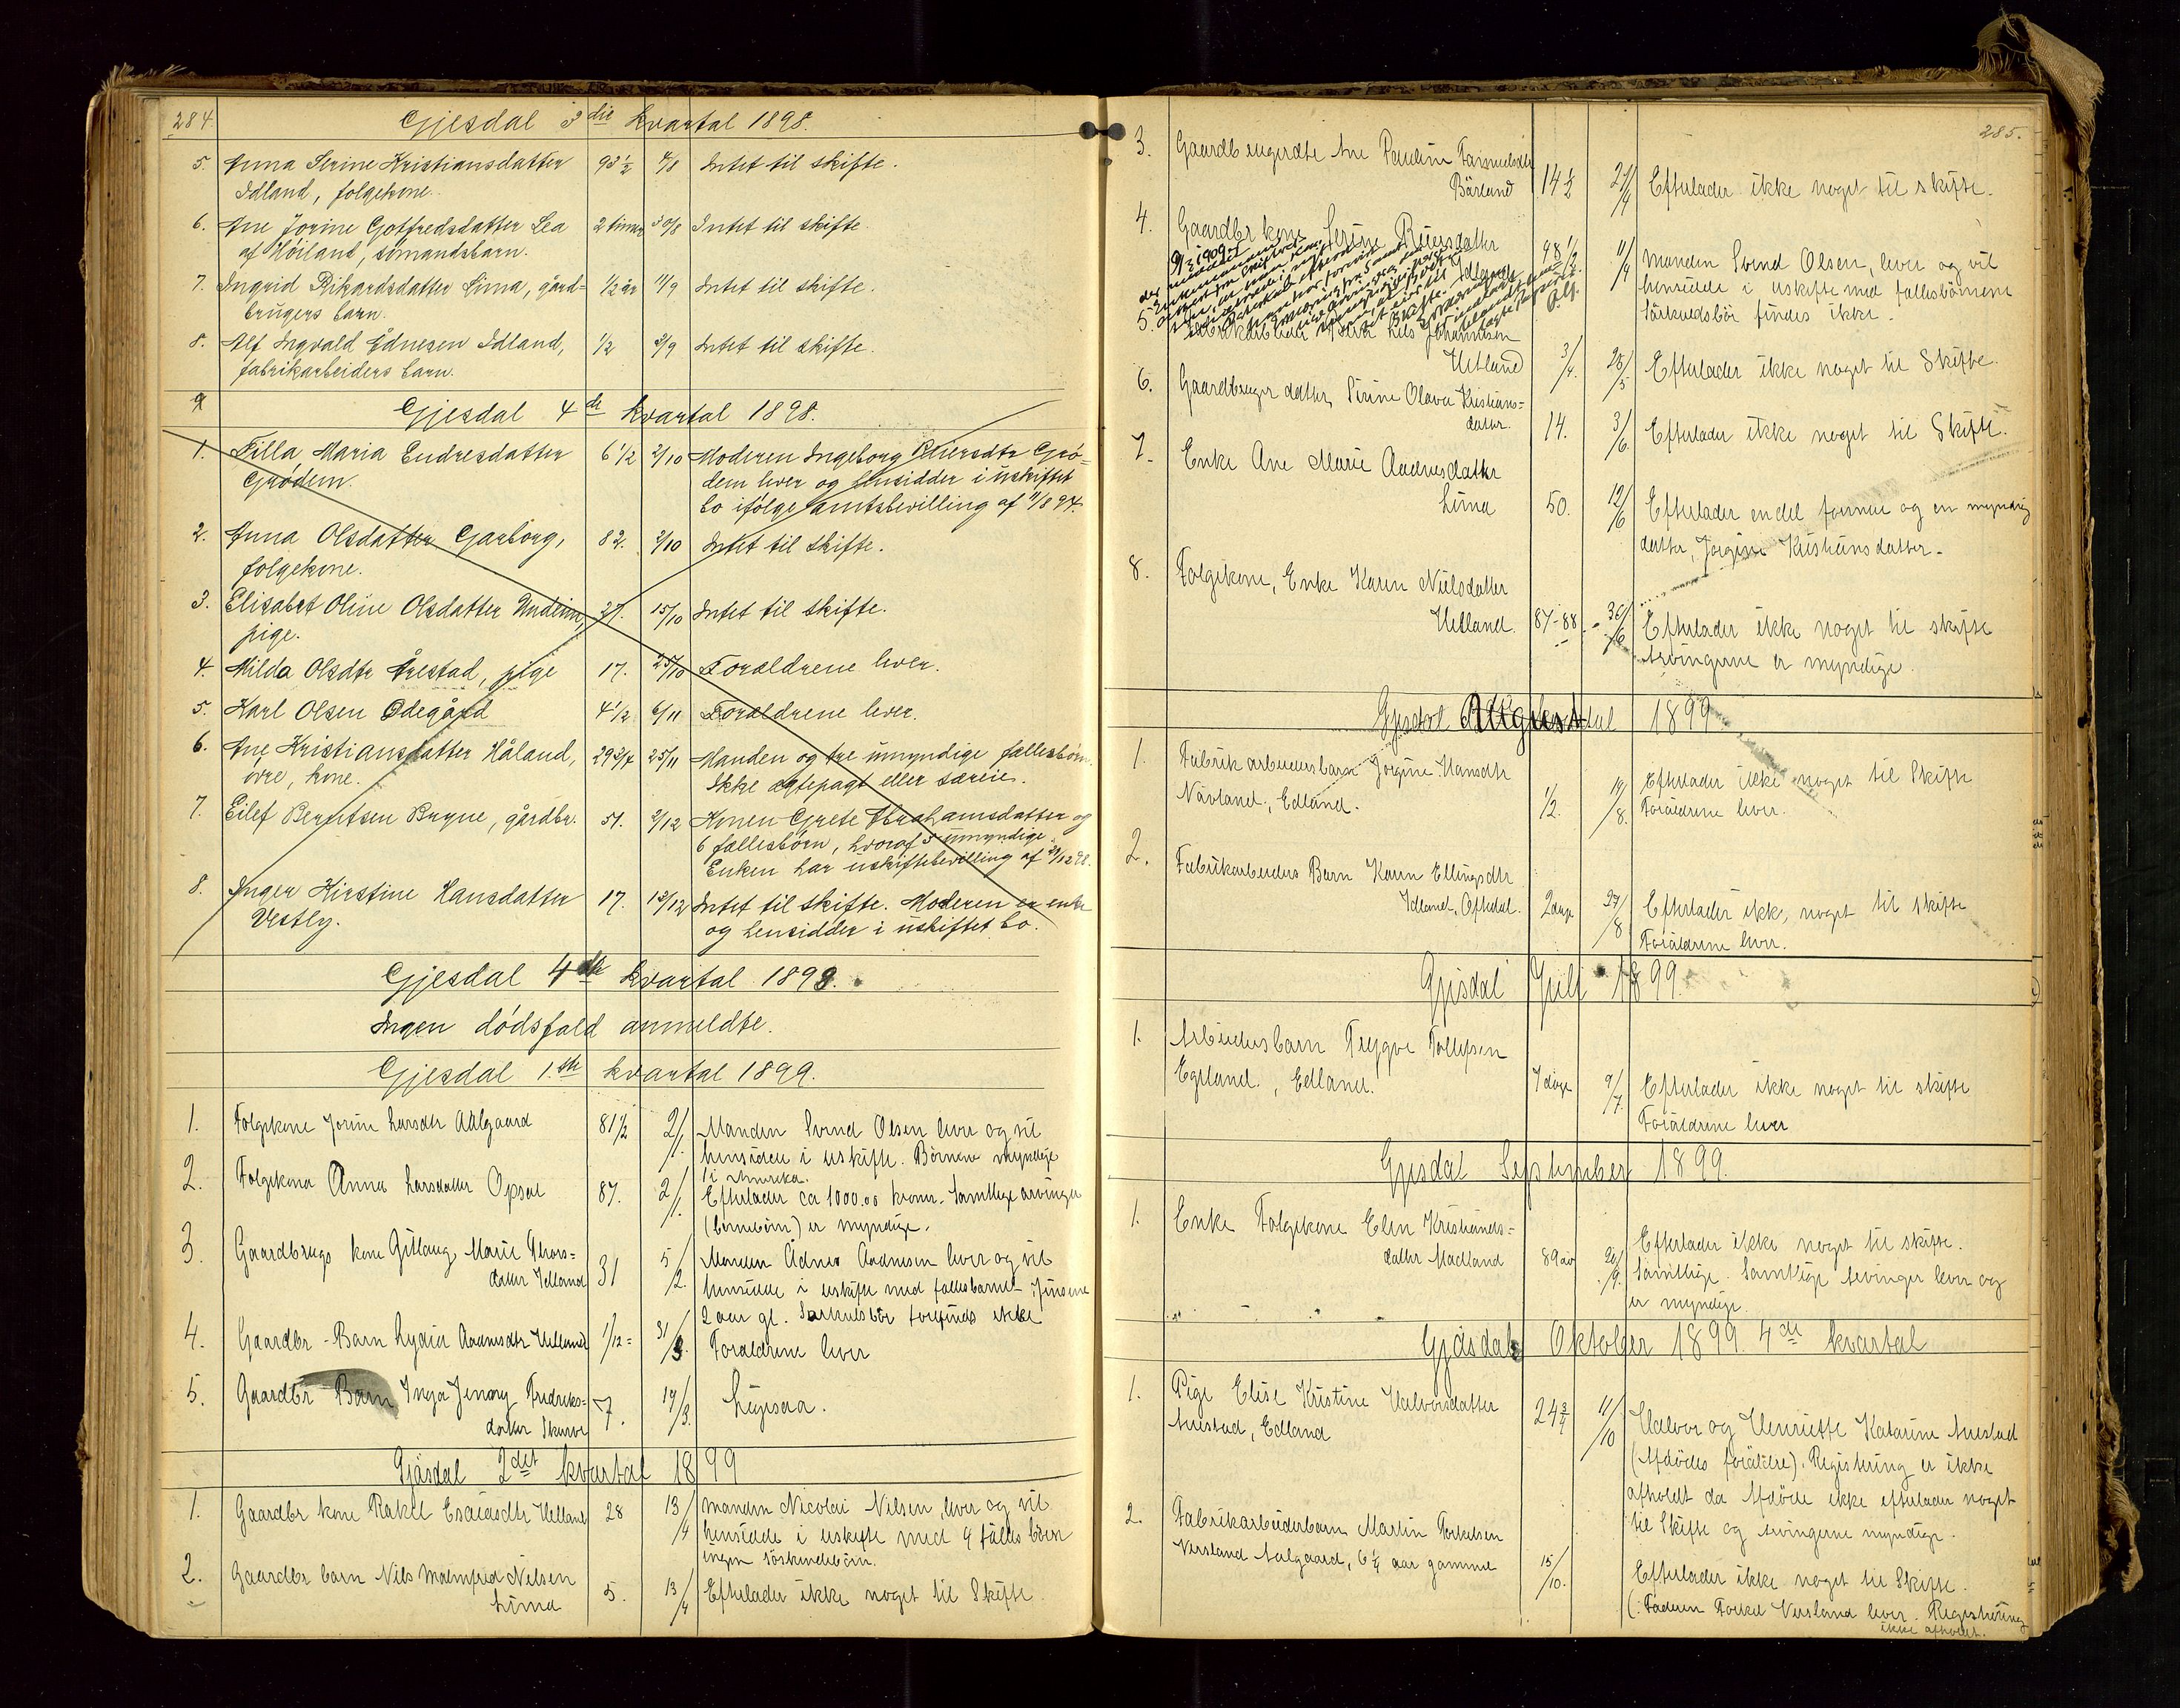 284.
Gjesdal 3die kvartal 1898.
5. Anna Serine Kristiansdatter 93 1/2 4/8 Intet til skifte.
Idland, folgekone.
6. Ane Jorine Gotfredsdatter Lea 2 timer 30/8 Intet til skifte.
af Höiland, sömandsbarn.
7. Ingrid Rikardsdatter Lima, gård- 1/2 år 11/9 Intet til skifte.
brugers barn.
8. Alf Ingvald Ednesen Idland, 1/2 3/9 Intet til skifte.
fabrikarbeiders barn.
Gjesdal 4de kvartal 1898.
1. Tilla Maria Endresdatter 6 1/2 2/10 Moderen Ingeborg Grö-
Grödem. dem lever og hensidder i uskiftet
bo ifölge amtsbevilling af 11/8 94.
2. Anna Olsdatter Garborg, 82. 2/10 Intet til skifte.
folgekone.
3. Elisabet Oline Olsdatter Undeim, 27. 15/10 Intet til skifte.
pige.
4. Milda Olsdtr Årestad, pige 17. 25/10 Forældrene lever.
5. Karl Olsen Ödegård 4 1/2 6/11 Forældrene lever.
6. Ane Kristiansdatter Håland, 29 3/4 25/11 Manden og tre umyndige fællesbörn.
övre, kone. Ikke ægtepagt eller særeie.
7. Eilef Berntsen Bryne, gårdbr. 51. 2/12 Konen Grete Abrahamsdatter og
6 fællesbörn, hvoraf 5 umyndige.
Enken har uskiftebevilling af 29/12 98.
8. Inger Kirstine Hansdatter 17. 12/12 Intet til skifte. Moderen er enke
Vestly. og hensidder i uskiftet bo.
Gjesdal 4de kvartal 1898.
Ingen dödsfald anmeldte.
Gjesdal 1.ste kvartal 1899.
1. Folgekone Jorine Larsdtr Aalgaard 81 1/2 2/1. Manden Svend Olsen lever og vil
hensidde i uskifte. Börnene myndige
i Amerika.
2. Folgekona Anna Larsdatter Opsal 87. 2/1. Efterlader ca 1000.00 kroner. Samtlige arvinger
(börnebörn) er myndige.
3. Gaardbrugs kone Gitlaug Marie Thors- 31 5/2. Manden Ådne Aadnesen lever og vil
datter Idland hensidde i uskifte med fællesbarnet
2 aar gl. Særkulsbör forefindes ikke
4. Gaardbr - Barn Lydia Aadnesdtr Helland 1/12 = 31/3. Foraldrene lever
5. Gaardbr - Barn Inga Jenny Fredriks- 7. 17/3. Ligesaa.
datter Skurve
Gjäsdal 2det kvartal 1899
1. Gaardbr kone Rakel Esaiasdtr Helland 28 13/4 manden Nicolai Nilsen, lever og vil
hensidde i uskifte med 4 fälles börn
ingen söskendebörn.
2. Gaardbr barn Nils Malmfred Nilsen 5. 13/4 Efterlader ikke noget til Skifte.
Lima
285.
3. Gaardbrugerdtr Ane Pauline
Bärland 14 1/2 27/4 Efterlader ikke noget til skifte.
4. Gaardbr kone Serine Reiersdatter 48 1/2. 11/4 manden Svend Olsen, lever og vil
hensidde i uskifte med fallesbörnene
Särkuldsbör findes ikke.
5. Lars Johannesen
Utland 3/4. 25/5 Efterlader ikke noget til Skifte.
6. Gaardbruger datter, Serine Olava Kristians-
datter. 14. 3/6. Efterlader ikke noget til Skifte.
7. Enke Ane Marie Aadnesdatter
Lima 50. 12/6 Efterlader endel formue og en myndig
datter, Jorgine Kristiansdatter.
8. Folgekone, Enke Karen Nielsdatter
Uetland. 87-88. 30/6 Efterlader ikke noget til skifte
Arvingerne er myndige.
Gjesdal August 1899
1. Fabrikarbeidersbarn Jörgine Hansdtr
Nävland, Edland. 1/2. 19/8. Efterlader ikke noget til Skifte
Foräldrene lever.
2. Fabrikarbeiders Barn Karen Ellingsdtr
Idland, Oftedal. 2 dage 27/8 Efterlader ikke, noget til skifte
Foräldrene lever.
Gjesdal Juli 1899.
1. Arbeidersbarn Trygve Tollefsen
Egeland, Edland. 7 dage 9/7. Efterlader ikke noget til skifte
Foräldrene lever
Gjesdal September 1899.
1. Enke Folgekone Elen Kristians-
datter Madland 89 aar 20/9. Efterlader ikke noget til skifte.
Samtlige. Samtlige Arvinger lever og
er myndige.
Gjäsdal Oktober 1899. 4de kvartal
1. Pige Elise Kristine Halvorsdatter 24 3/4 11/10 Halvor og Henriette Katarine Aurestad
Aurestad, Edland (Afdödes foräldre). Registering er ikke
afholdt da Afdöde ikke efterlader noget
til Skifte og Arvingerne myndige.
2. Fabrikarbeiderbarn Martin Torkelsen
Versland Aalgaard, 6 1/4 aar gammel 15/10. Efterlader ikke noget til Skifte.
(: Faderen Torkel Versland lever. Registrering
ikke afholdt.